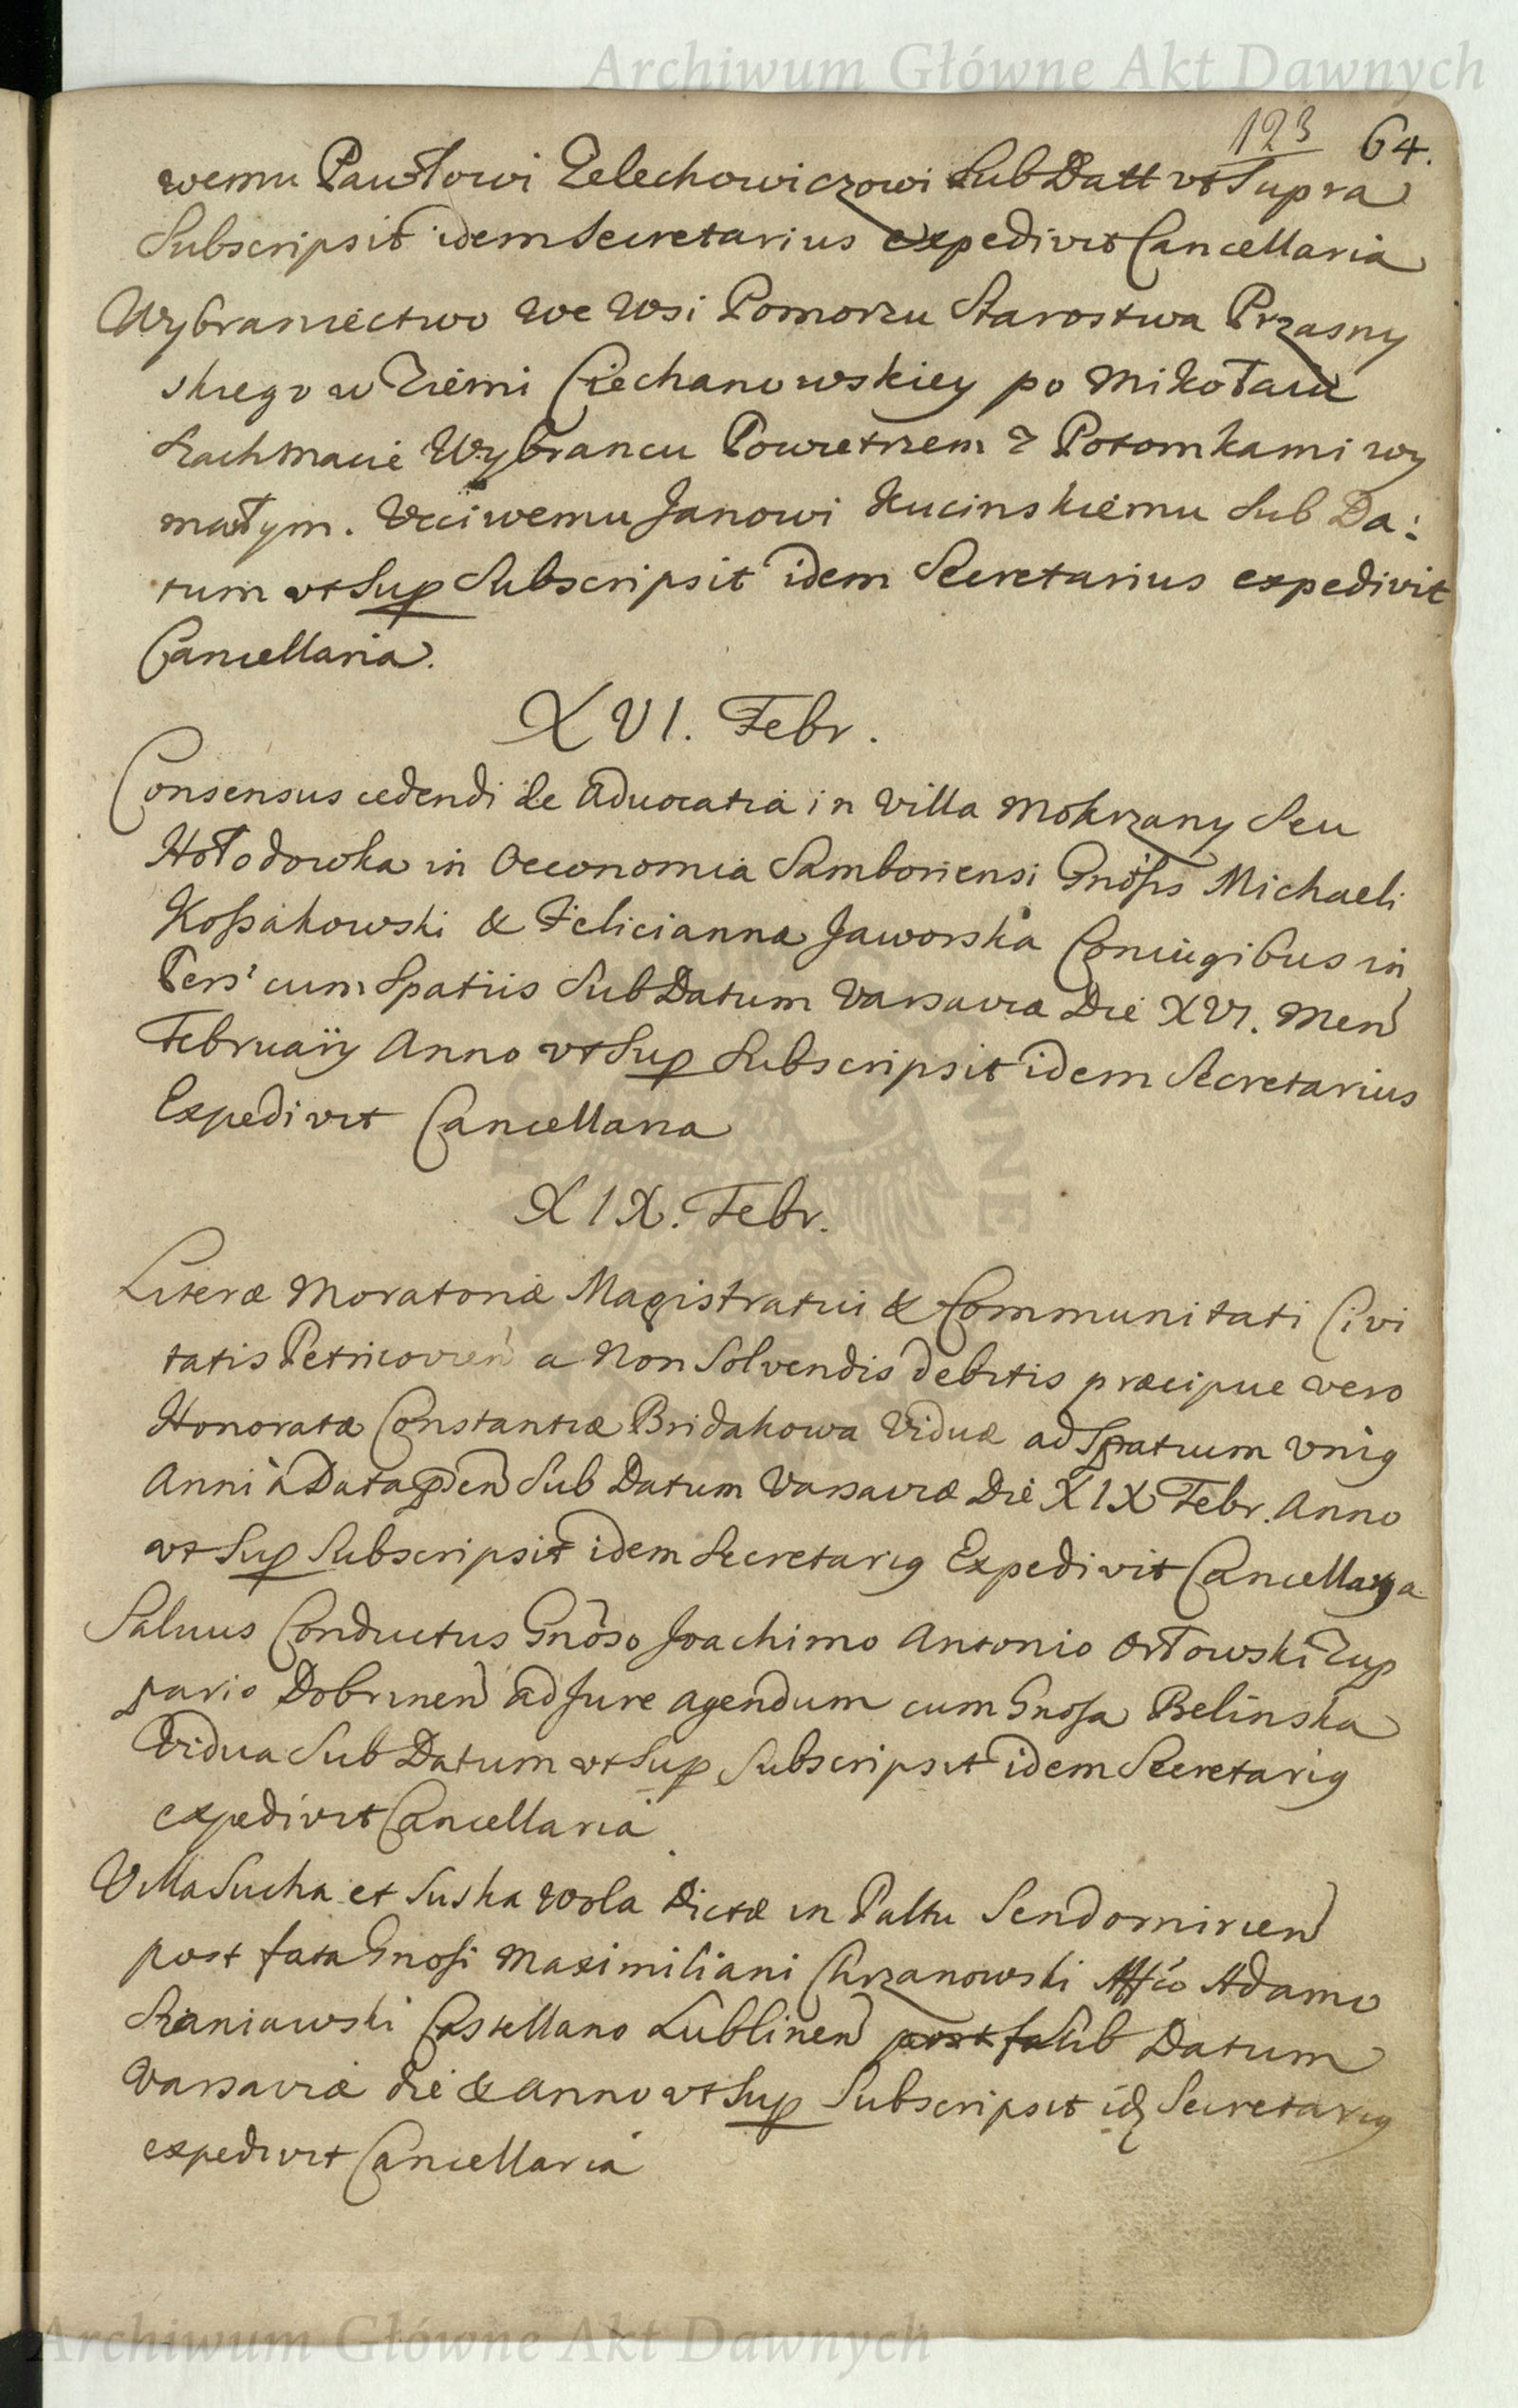 Archiwum Główne Akt Dawnych
123 64.
wemu Pawłowi Zelechowiczowi Sub Datt vt Supra
Subscripsit idem Secretarius expedivit Cancellaria
Wybraniectwo We Wsi Pomorzu Starostwa Przasny
skiego w Ziemi Ciechanowskiey po Mikołaiu
Szachmacie Wybrancu Powietrzem z Potomkami wy
marłym. Vcciwemu Janowi Kucinskiemu Sub Da:
tum vt Sup Subscripsit idem Secretarius expedivit
Cancellaria.
XVI. Febr.
Consensus cedendi de Aduocatia in Villa Mokrzany Seu
Hołodowka in Oeconomia Samboriensi Gnosis Michaeli
Koßakowski & Felicianna Jaworska Coniugibus in
Pers' cum Spatiis Sub Datum Varsavia Die XVI. Men
Februarij Anno vt Sup Subscripsit idem Secretarius
Expedivit Cancellaria
XIX. Febr.
Literæ Moratoriæ Magistratui & Communitati Civi
tatis Petricovien a Non Solvendis debitis præcipue vero
Honoratæ Constantiæ Bridakowa Viduæ ad Spatium vnig
Anni à Data pñ Sub Datum Varsaviæ Die XIX Febr. Anno
vt Sup Subscripsit idem Secretarig Expedivit Cancellarya
Saluus Conductus Gnôso Joachimo Antonio Orłowski Zup
pario Dobrinen ad Jure agendum cum Gnosa Belinska
Vidua Sub Datum vt Sup Subscripsit idem Secretarig
expedivit Cancellaria
Villa Sucha et Suska Wola Dictæ in Paltu Sendomirien
post fata Gnosi Maximiliani Chrzanowski Mfico Adamo
Sieniawski Castellano Lublinen post fa Sub Datum
Varsaviæ die & anno vt Sup Subscripsit idz Secretarig
expedivit Cancellaria
Archiwum Główne Akt Dawnych